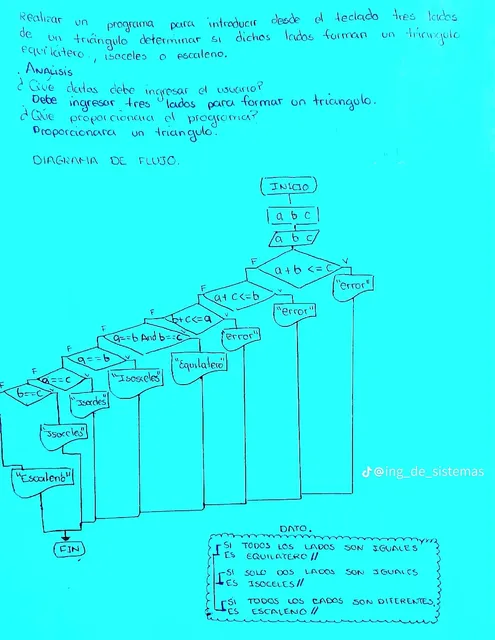 Realizar un programa para introducir desde el teclado tres lados
de un triángulo determinar si dichos lados forman un triángulo
equilátero, isoceles o escaleno.
. Análisis
¿Qué datos debe ingresar el usuario?
Debe ingresar tres lados para formar un triangulo.
¿Qué proporcionara el programa?
Proporcionara un triangulo.
DIAGRAMA DE FLUJO.
INICIO
a b c
a b c
F a+b <= c V
"error"
F a+ c<=b V
"error"
F b+c<=a V
"error"
F a==b And b==c V
"Equilatero"
F a==b V
"Isosceles"
F a==c V
"Isoceles"
F b==c V
"Isoceles"
"Escaleno"
FIN
@ing_de_sistemas
DATO.
SI TODOS LOS LADOS SON IGUALES
ES EQUILATERO //
SI SOLO DOS LADOS SON IGUALES
ES ISOCELES //
SI TODOS LOS LADOS SON DIFERENTES
ES ESCALENO //